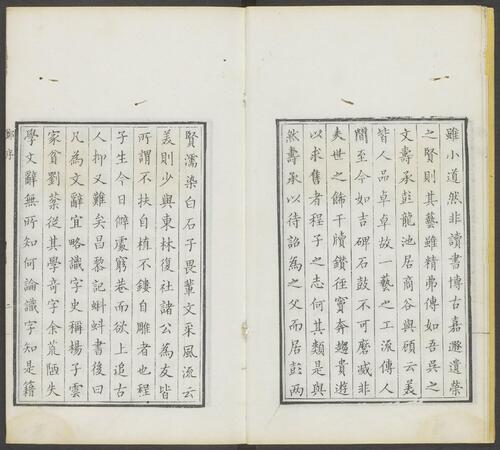 雖小道然非讀書博古嘉遯遺榮
之賢則其藝雖精弗傳如吾吳之
文壽承彭龍池居商谷與顧云美
皆人品卓卓故一藝之工流傳人
間至今如吉碑石鼓不可磨滅非
夫世之飾干牘鑽徑竇奔趨貴遊
以求售者程子之志何其類是與
然壽承以待詔為之父而居彭兩
賢濡染白石子畏輩文采風流云
美則少與東林復社諸公為友皆
所謂不扶自植不鏤自雕者也程
子生今日僻處窮巷而欲上追古
人抑又難矣昌黎記蝌蚪書後曰
凡為文辭宜略識字史稱楊子雲
家貧劉棻從其學奇字余荒陋失
學文辭無所知何論識字知是籍
序
二